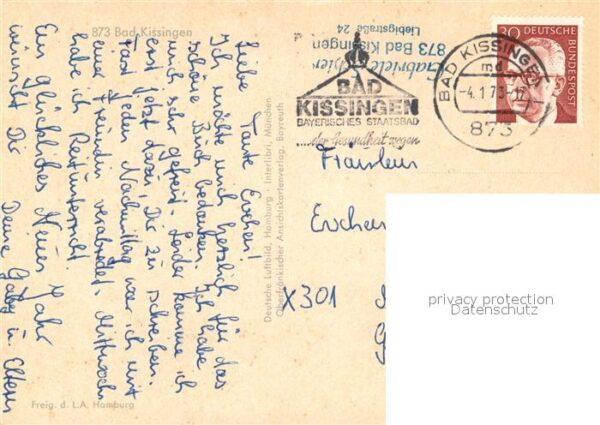 873 Bad Kissingen
Liebe Tante Evchen!
Ich möchte mich herzlich für das
schöne Buch bedanken. Ich habe
mich sehr gefreut. Leider komme ich
erst jetzt dazu, Dir zu schreiben.
Fast jeden Nachmittag war ich mit
einer Freundin verabredet. Mittwochs
habe ich Reitunterricht.
Ein glückliches Neues Jahr
wünscht Dir
Deine Gaby u. Eltern
Freig. d. L.A. Hamburg
Deutsche Luftbild, Hamburg · Interlibri, München
Oberfränkischer Ansichtskartenverlag, Bayreuth
Gabriele
873 Bad Kissingen
Liebigstraße 24
BAD
KISSINGEN
BAYERISCHES STAATSBAD
...der Gesundheit wegen
BAD KISSINGEN
md
-4.1.73-17
873
30
DEUTSCHE
BUNDESPOST
Fräulein
Evchen
X301
privacy protection
Datenschutz